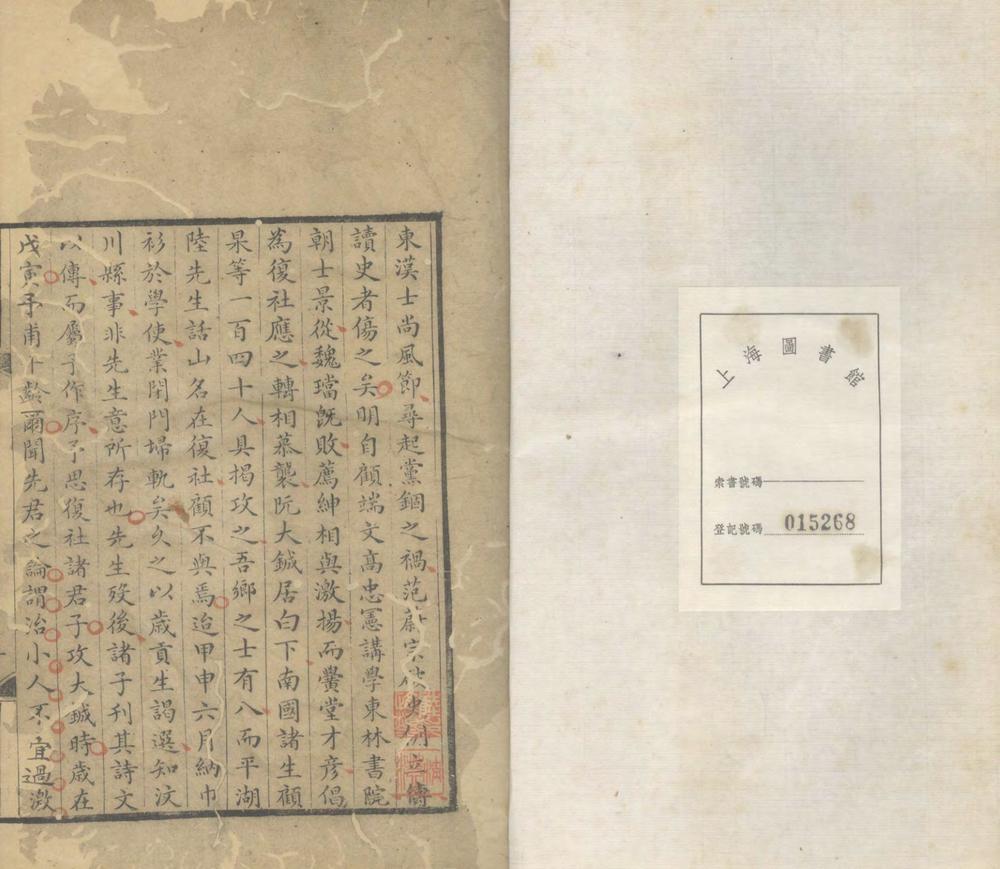 上海圖書館
索書號碼
登記號碼 015268
東漢士尚風節尋起黨錮之禍范蔚宗後史創立傳
讀史者傷之矣明自顧端文高忠憲講學東林書院
朝士景從魏璫既敗薦紳相與激揚而黌堂才彥倡
為復社應之轉相慕襲阮大鋮居白下南國諸生顧
杲等一百四十人具揭攻之吾鄉之士有八而平湖
陸先生話山名在復社顧不與焉迨甲申六月納巾
衫於學使業閉門埽軌矣久之以歲貢生謁選知汶
川縣事非先生意所存也先生歿後諸子刊其詩文
以傳而屬予作序予思復社諸君子攻大鋮時歲在
戊寅予甫十齡爾聞先君之論謂治小人不宜過激